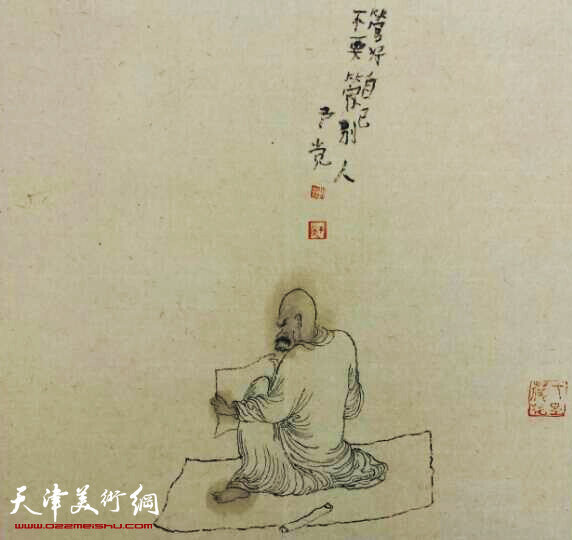 管好自己
不要管别人
天津美術網
www.022meishu.com